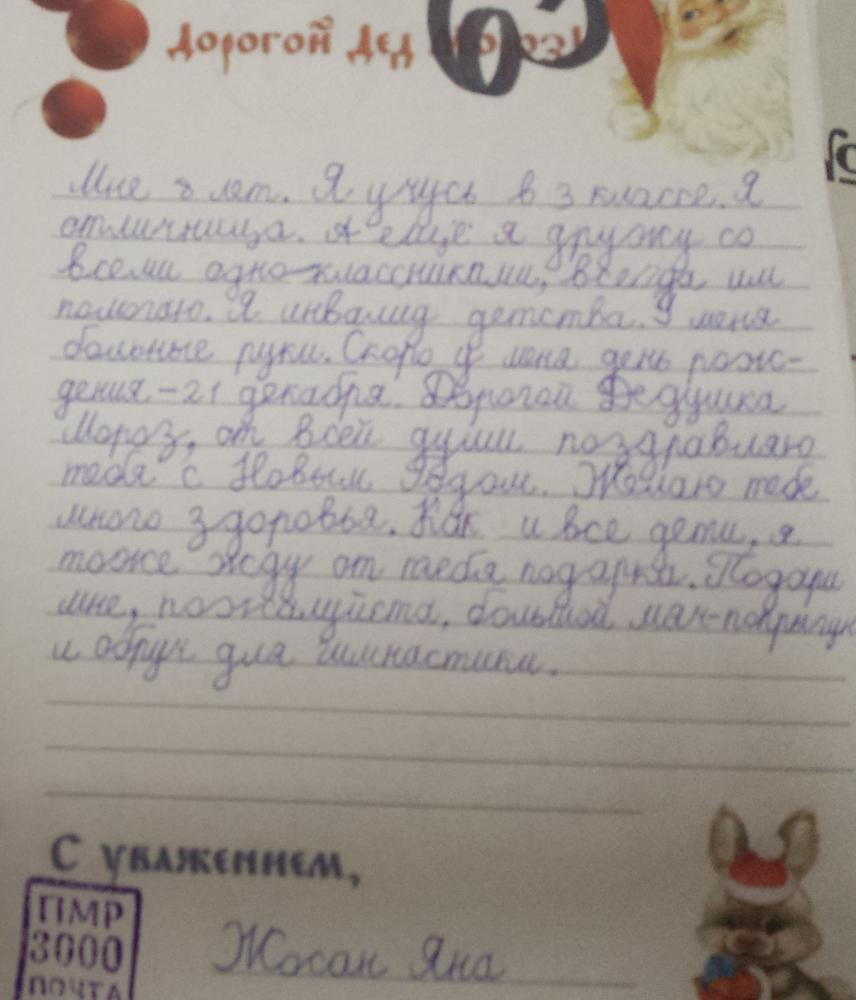 Дорогой Дед Мороз!
63
Мне 8 лет. Я учусь в 3 классе. Я
отличница. А ещё я дружу со
всеми одноклассниками, всегда им
помогаю. Я инвалид детства. У меня
больные руки. Скоро у меня день рож-
дения - 21 декабря. Дорогой Дедушка
Мороз, от всей души поздравляю
тебя с Новым Годом. Желаю тебе
много здоровья. Как и все дети, я
тоже жду от тебя подарка. Подари
мне, пожалуйста, большой мяч-попрыгун
и обруч для гимнастики.
С уважением,
Жосан Яна
ПМР
3000
ПОЧТА